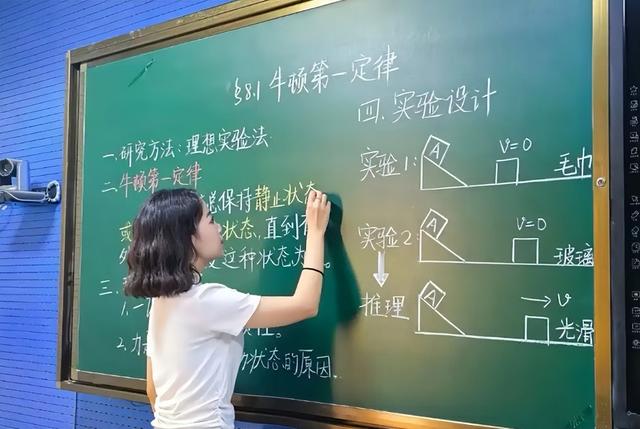 §8.1 牛顿第一定律
一.研究方法:理想实验法
二.牛顿第一定律
总保持静止状态
或 状态,直到有
外 变这种状态为止。
三.
1.一
性。
2.力 状态的原因。
四.实验设计
实验1: A V=0 毛巾
实验2: A V=0 玻璃
推理 A v 光滑